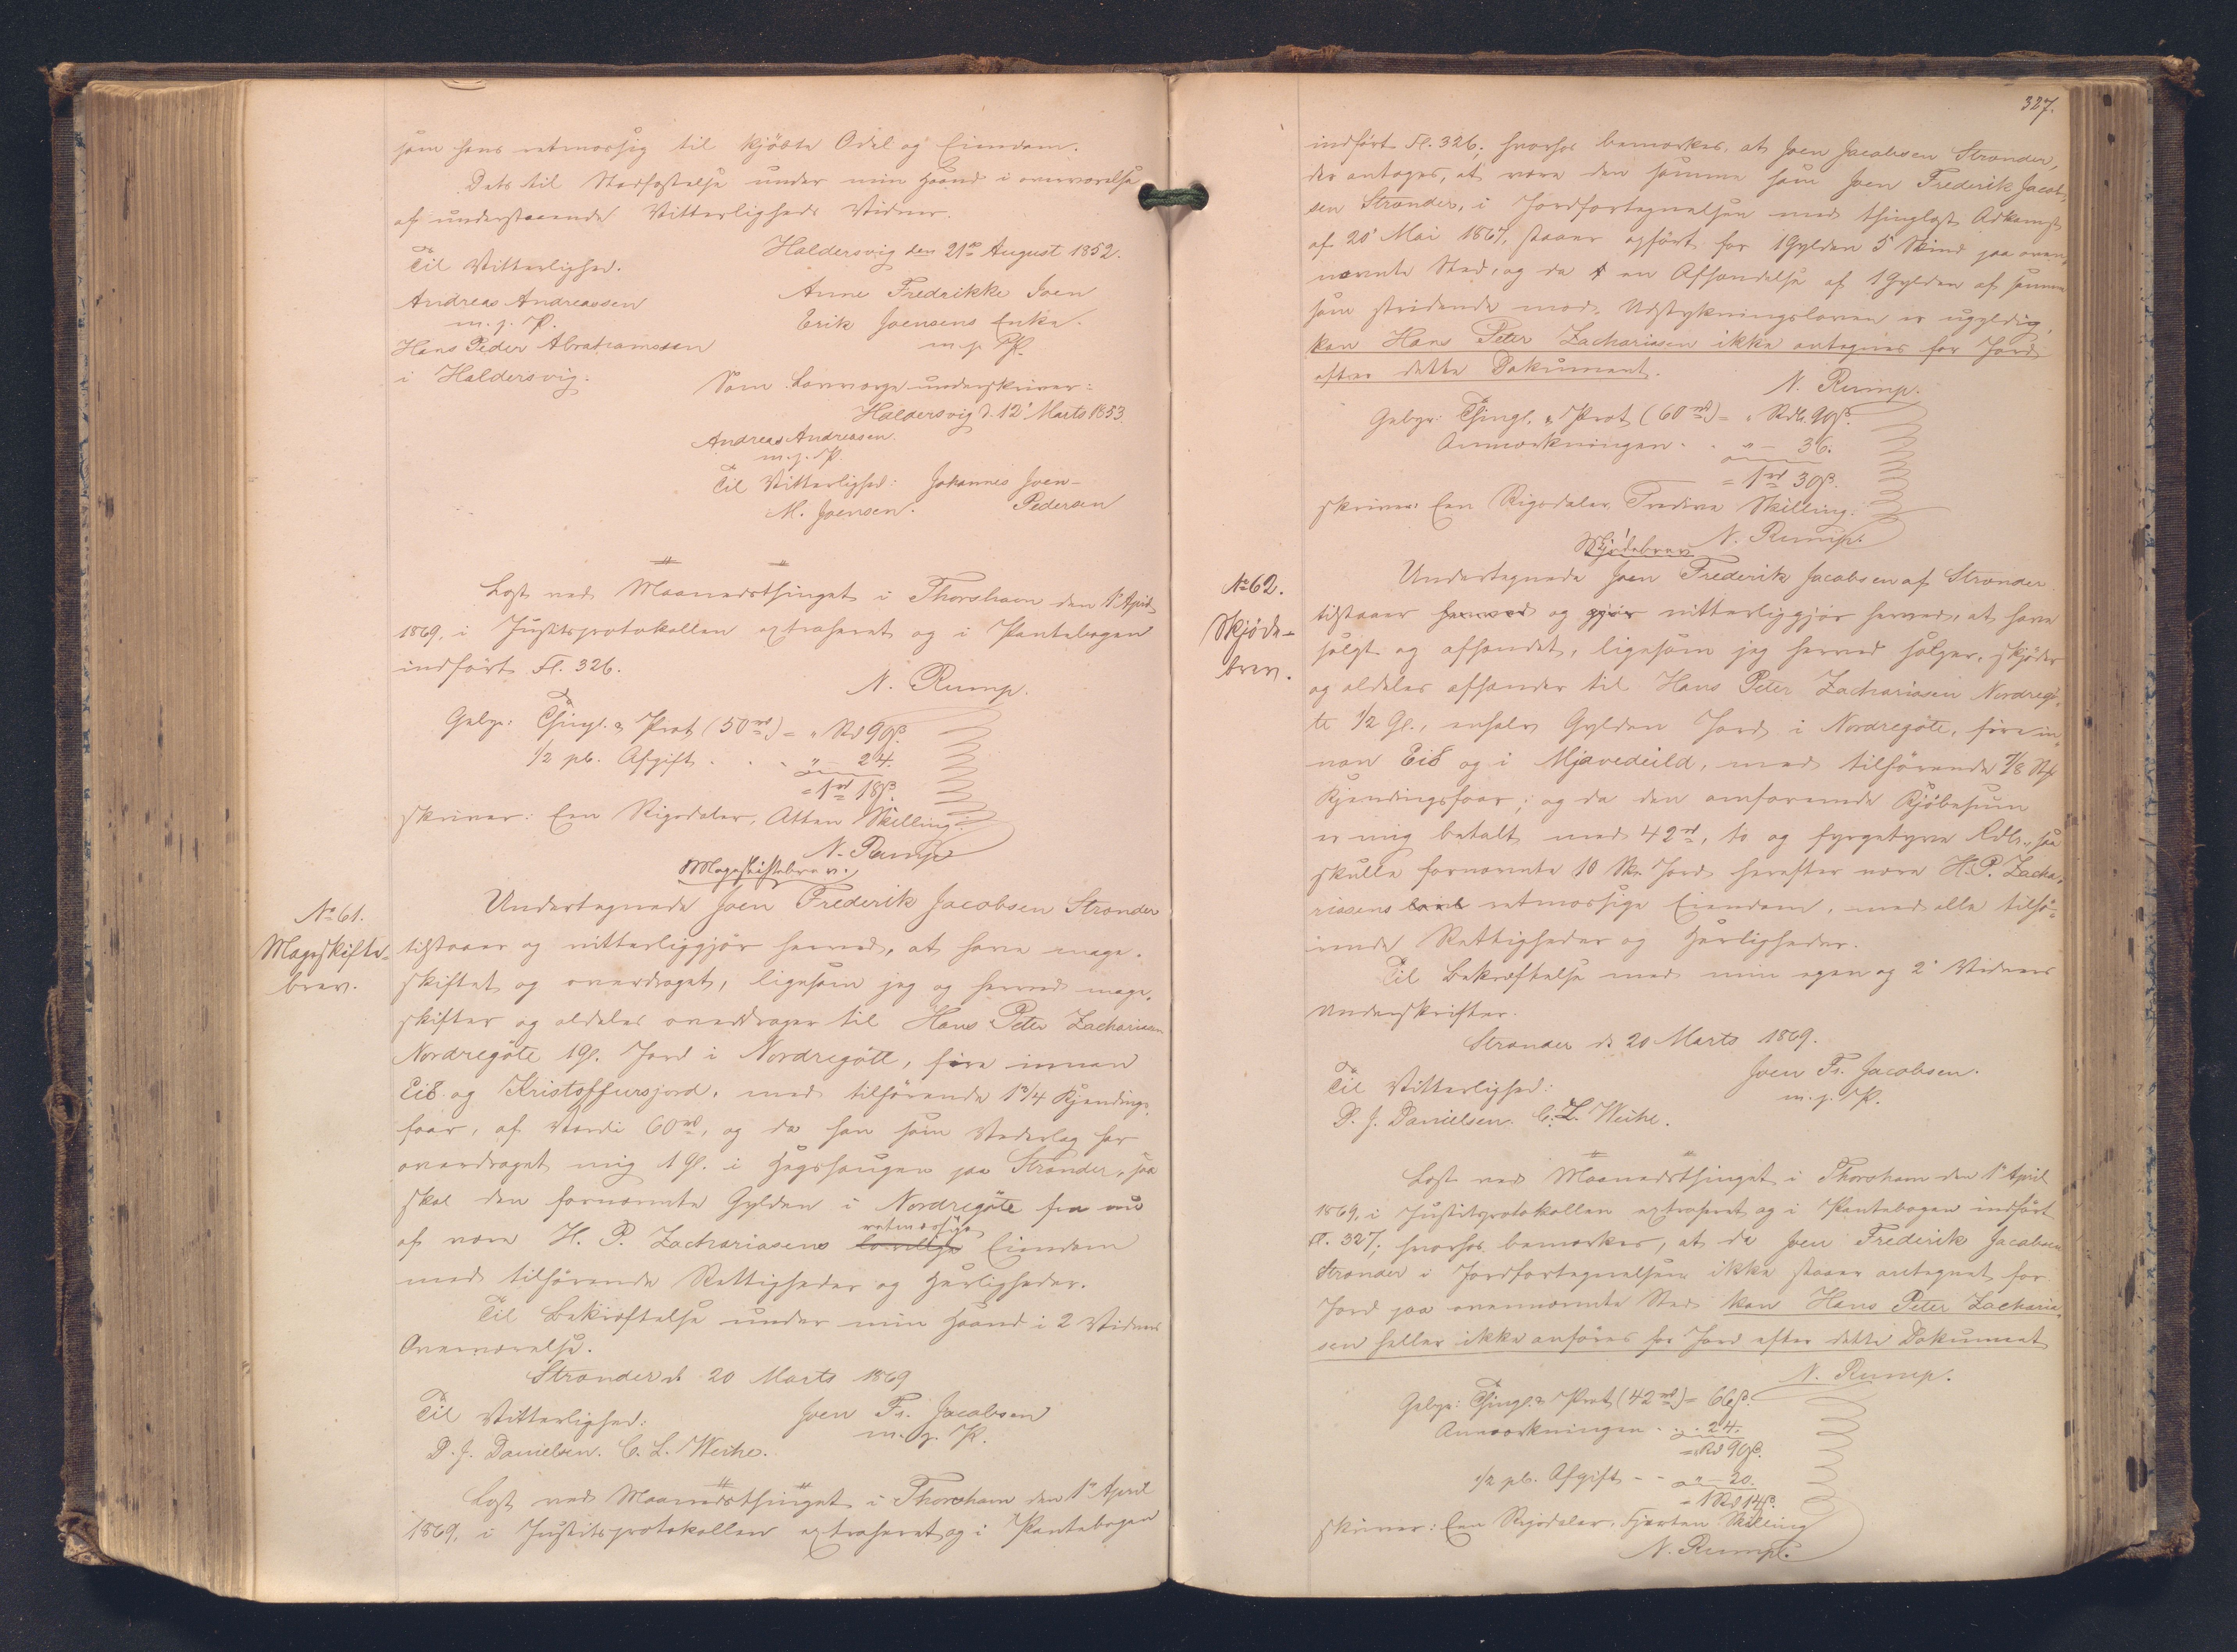 som hans retmæssig til kjöbte Odel og Eiendom.
Dets til Stadfæstelse under min Haand i overværelse
af understaaende Vitterligheds Vidner.
Haldersvig den 21de August 1852.
Til Vitterlighed.
Anne Fredrikke Joen
Andreas Andreassen
Erik Joensens Enke.
m. f. P.
m. f. P.
Hans Peder Abrahamsen
i Haldersvig.
Som Lavværge underskriver:
Haldersvig d. 12' Marts 1853.
Andreas Andreasen.
m. f. P.
Til Vitterlighed: Johannes Joen-
M. Joensen. Pedersen
Læst ved Maanedsthinget i Thorshavn den 1' April
1869, i Justitsprotokollen extraheret og i Pantebogen
indført Fl. 326.
N. Rump.
Gebyr: Thingl. & Prot (50 rd) = " Rd 90 β.
1/2 pC. Afgift . . . " 24.
= 1 rd 18 β.
skriver: Een Rigsdaler, Atten Skilling.
N. Rump
Mageskiftebrev.
No 61.
Mageskifte-
brev.
Undertegnede Joen Frederik Jacobsen Strænder
tilstaaer og vitterliggjör herved, at have mage-
skiftet og overdraget, ligesom jeg og herved mage-
skifter og aldeles overdrager til Hans Peter Zachariasen
Nordregöte 1 Gl. Jord i Nordregöte, fire innan
Eið og Kristoffursjord, med tilhörende 1 3/4 Kjendings
faar, af Værdi 60 rd, og da han som Vederlag har
overdraget mig 1 Gl. i Høgshaugen paa Strænder, saa
skal den fornævnte Gylden i Nordregöte fra nu
retmæssige
af være H. P. Zachariasens lovlige Eiendom
med tilhörende Rettigheder og Herligheder.
Til Bekræftelse under min Haand i 2 Vidners
Overværelse.
Strænder d. 20 Marts 1869
Til Vitterlighed: Joen Fr. Jacobsen
m. f. P.
D. J. Danielsen. C. L. Weihe.
Læst ved Maanedsthinget i Thorshavn den 1' April
1869, i Justitsprotokollen extraheret og i Pantebogen
327.
indført Fl. 326; hvorhos bemærkes, at Joen Jacobsen Strænder,
der antages, at være den samme som Joen Frederik Jacob-
sen Strænder, i Jordfortegnelsen med thinglæst Adkomst
af 20' Mai 1867, staaer opført for 1 Gylden 5 Skind paa oven-
nævnte Sted, og da en Afhændelse af 1 Gylden af samme
som stridende mod Udstykningsloven er ugyldig,
kan Hans Peter Zachariasen ikke antegnes for Jord
efter dette Dokument.
N. Rump.
Gebyr: Thingl. & Prot (60 rd) = " Rdl. 90 β.
Anmærkningen . . " - 36.
= 1 rd 30 β.
skriver: Een Rigsdaler, Tredive Skilling.
N. Rump.
Skjödebrev
No 62.
Skjöde-
brev.
Undertegnede Joen Frederik Jacobsen af Strænder
tilstaaer herved og gjör vitterliggjör herved, at have
solgt og afhændet, ligesom jeg herved sælger, skjöder
og aldeles afhænder til Hans Peter Zachariasen Nordregö-
te 1/2 Gl., enhalv Gylden Jord i Nordregöte, fire in-
nan Eið og i Mjavedeild, med tilhörende 7/8 Stk
Kjendingsfaar; og da den omforenede Kjöbesum
er mig betalt med 42 rd, to og fyrgetyve Rdlr., saa
skulle fornævnte 10 Sk. Jord herefter være H. P. Zacha-
riasens lovl retmæssige Eiendom, med alle tilhö-
rende Rettigheder og Herligheder.
Til Bekræftelse med min egen og 2' Vidners
Underskrifter.
Strænder d. 20 Marts 1869.
Joen Fr. Jacobsen.
Til Vitterlighed:
m. f. P.
D. J. Danielsen. C. L. Weihe.
Læst ved Maanedsthinget i Thorshavn den 1' April
1869, i Justitsprotokollen extraheret og i Pantebogen indført
Fl. 327; hvorhos bemærkes, at da Joen Frederik Jacobsen
Strænder i Jordfortegnelsen ikke staaer antegnet for
Jord paa ovennævnte Sted kan Hans Peter Zacharia-
sen heller ikke anföres for Jord efter dette Dokument
N. Rump.
Gebyr: Thingl. & Prot (42 rd) = 66 β.
Anmærkningen . . . 24.
= Rd 90 β.
1/2 pC. Afgift - - " - 20.
= 1 Rd 14 β.
skriver: Een Rigsdaler, Fjorten Skilling
N. Rump.